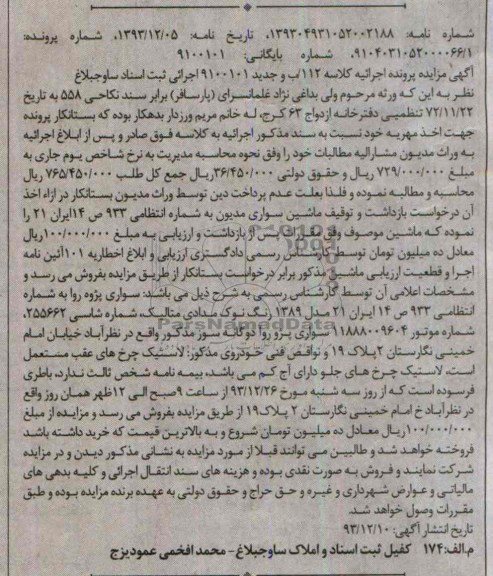 شماره نامه: ۱۳۹۳۰۴۹۳۱۰۵۲۰۰۲۱۸۸، تاریخ نامه: ۱۳۹۳/۱۲/۰۵، شماره پرونده:
۹۱۰۴۰۳۱۰۵۲۰۰۰۰۶۶/۱، شماره بایگانی: ۹۱۰۰۱۰۱
آگهی مزایده پرونده اجرائیه کلاسه ۱۱۲/ب و جدید ۹۱۰۰۱۰۱ اجرائی ثبت اسناد ساوجبلاغ
نظر به این که ورثه مرحوم ولی بداغی نژاد غلمانسرای (پارسافر) برابر سند نکاحی ۵۵۸ به تاریخ
۷۲/۱۱/۲۲ تنظیمی دفترخانه ازدواج ۶۳ کرج، له خانم مریم ورزدار بدهکار بوده که بستانکار پرونده
جهت اخذ مهریه خود نسبت به سند مذکور اجرائیه به کلاسه فوق صادر و پس از ابلاغ اجرائیه
به وراث مدیون مشارالیه مطالبات خود را وفق نحوه محاسبه مدیریت به نرخ شاخص یوم جاری به
مبلغ ۷۲۹/۰۰۰/۰۰۰ ریال و حقوق دولتی ۳۶/۴۵۰/۰۰۰ریال جمع کل طلب ۷۶۵/۴۵۰/۰۰۰ ریال
محاسبه و مطالبه نموده و فلذا بعلت عدم پرداخت دین توسط وراث مدیون بستانکار در ازاء اخذ
آن درخواست بازداشت و توقیف ماشین سواری مدیون به شماره انتظامی ۹۳۳ ص ۱۴ایران ۲۱ را
نموده که ماشین موصوف وفق مقررات پس از بازداشت و ارزیابی به مبلغ ۱۰۰/۰۰۰/۰۰۰ریال
معادل ده میلیون تومان توسط کارشناس رسمی دادگستری ارزیابی و ابلاغ اخطاریه ۱۰۱آئین نامه
اجرا و قطعیت ارزیابی ماشین مذکور برابر درخواست بستانکار از طریق مزایده بفروش می رسد و
مشخصات اعلامی آن توسط کارشناس رسمی به شرح ذیل می باشد: سواری پژوه روا به شماره
انتظامی ۹۳۳ ص ۱۴ ایران ۲۱ مدل ۱۳۸۹ رنگ نوک مدادی متالیک، شماره شاسی ۲۵۵۶۶۲،
شماره موتور ۱۱۸۸۸۰۰۹۶۰۴ سواری پژو روا دوگانه سوز مذکور واقع در نظرآباد خیابان امام
خمینی نگارستان ۲پلاک ۱۹ و نواقص فنی خودروی مذکور: لاستیک چرخ های عقب مستعمل
است، لاستیک چرخ های جلو دارای آج کم می باشد، بیمه نامه شخص ثالث ندارد، باطری
فرسوده است که از روز سه شنبه مورخ ۹۳/۱۲/۲۶ از ساعت ۹صبح الی ۱۲ظهر همان روز واقع
در نظرآباد خ امام خمینی نگارستان ۲ پلاک۱۹ از طریق مزایده بفروش می رسد و مزایده از مبلغ
۱۰۰/۰۰۰/۰۰۰ریال معادل ده میلیون تومان شروع و به بالاترین قیمت که خرید داشته باشد
فروخته خواهد شد و طالبین می توانند قبلا از مورد مزایده به نشانی مذکور دیدن و در مزایده
شرکت نمایند و فروش به صورت نقدی بوده و هزینه های سند انتقال اجرائی و کلیه بدهی های
مالیاتی و عوارض شهرداری و غیره و حق حراج و حقوق دولتی به عهده برنده مزایده بوده و طبق
مقررات وصول خواهد شد.
تاریخ انتشار آگهی: ۹۳/۱۲/۱۰
م.الف: ۱۷۴ کفیل ثبت اسناد و املاک ساوجبلاغ- محمد افخمی عمودیزج